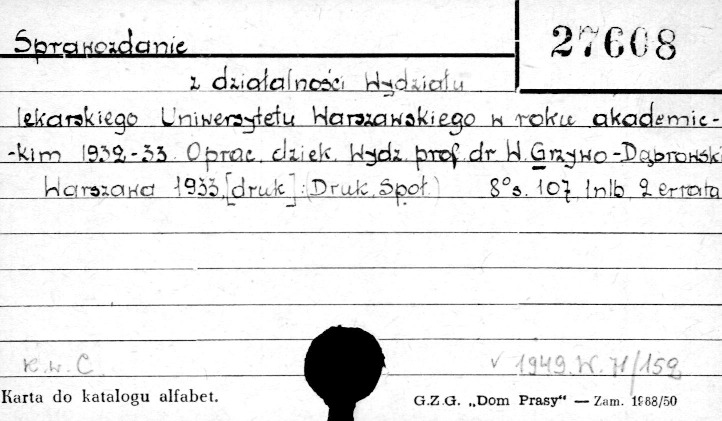 Sprawozdanie
27608
z działalności Wydziału
lekarskiego Uniwersytetu Warszawskiego w roku akademic-
-kim 1932-33. Oprac. dziek. Wydz. prof. dr W. Grzywo-Dąbrowski
Warszawa 1933, [druk]: (Druk. Społ.) 8° s. 107, 1nlb. 2 errata
K.w. C v 1949.W.71/152
Karta do katalogu alfabet. G.Z.G. „Dom Prasy“ — Zam. 1988/50